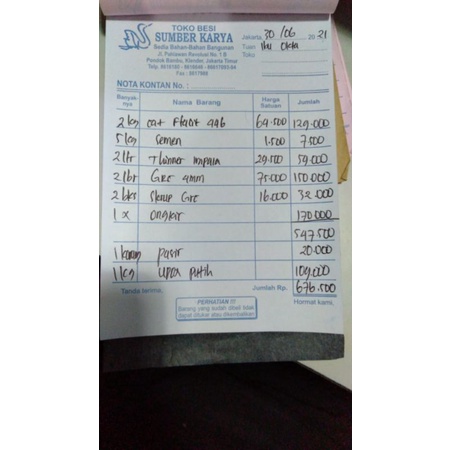 TOKO BESI
SUMBER KARYA
Sedia Bahan-Bahan Bangunan
Jl. Pahlawan Revolusi No. 1 B
Pondok Bambu, Klender, Jakarta Timur
Fax : 8617986
Jakarta, 30/06 2021
Tuan Ibu Okta
Toko
NOTA KONTAN No. :
Banyaknya Nama Barang Harga Satuan Jumlah
2 kg cat 446 64.500 129.000
5 kg Semen 1.500 7.500
2 ltr Thinner Impala 29.500 59.000
2 lbr Grc 4mm 75.000 150.000
2 bks Skrup Grc 16.000 32.000
1 x ongkir 170.000
547.500
1 karung pasir 20.000
1 kg putih 109.000
Tanda terima, Jumlah Rp. 676.500
PERHATIAN !!!
Barang yang sudah dibeli tidak
dapat ditukar atau dikembalikan
Hormat kami,